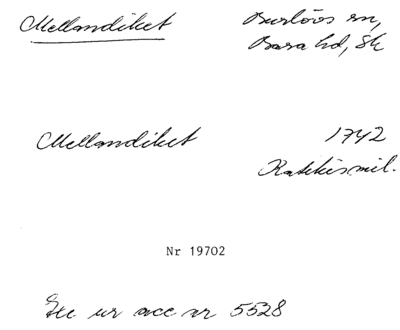 Mellandiket Burlövs sn,
Bara hd, Sk
Mellandiket 1742
mil.
Nr 19702
Exc ur acc nr 5528